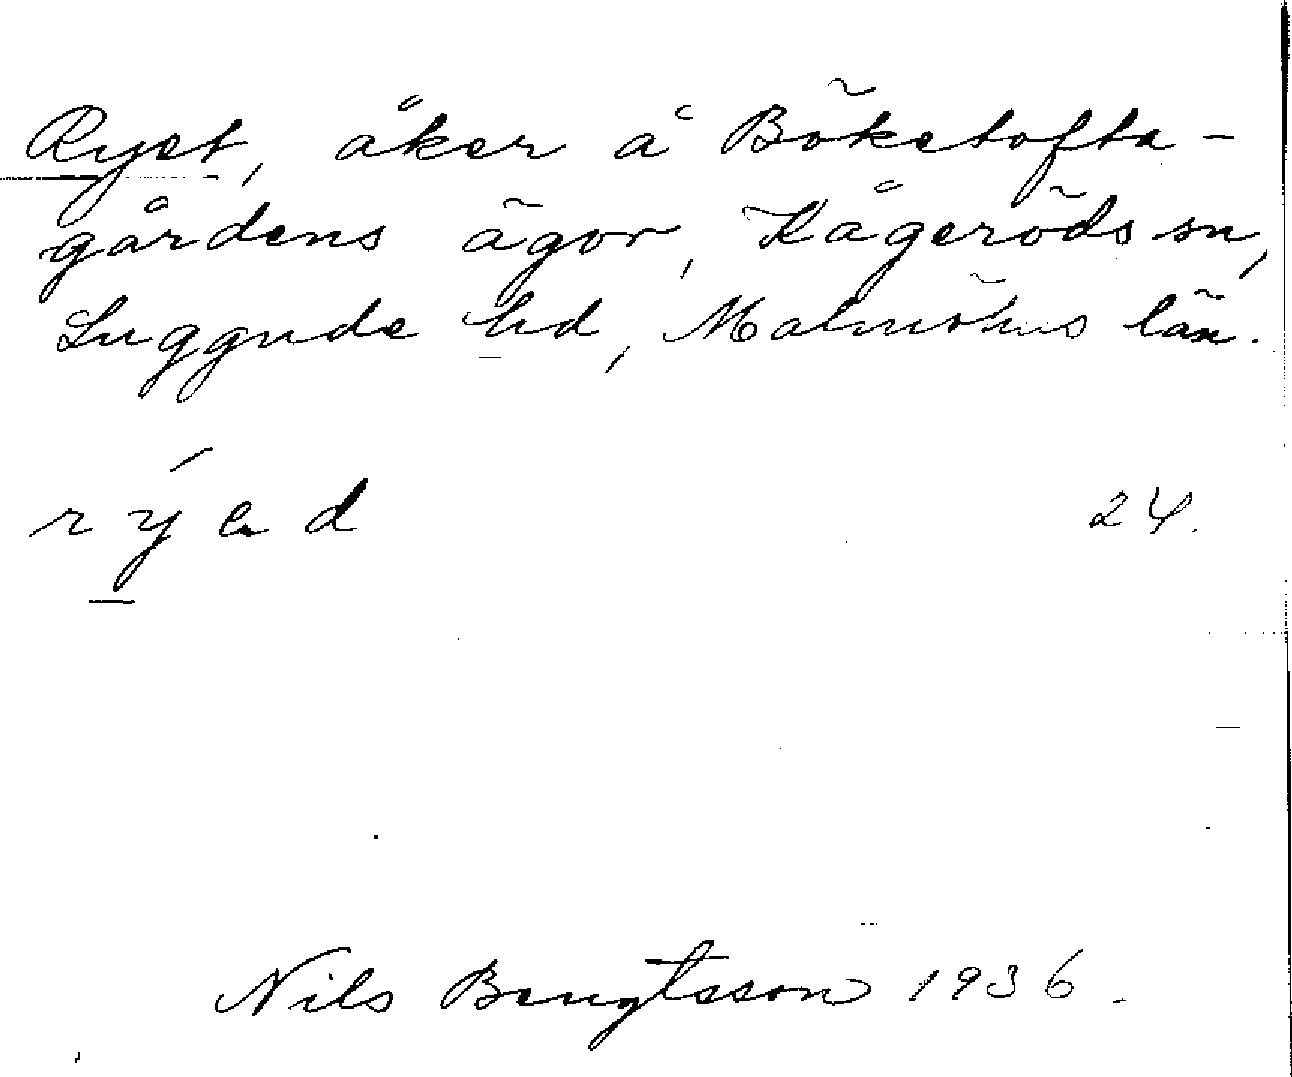 Ryet, åker å Böketofta-
gårdens ägor, Kågeröds sn,
Luggude hd, Malmöhus län.
24.
Nils Bengtsson 1936.